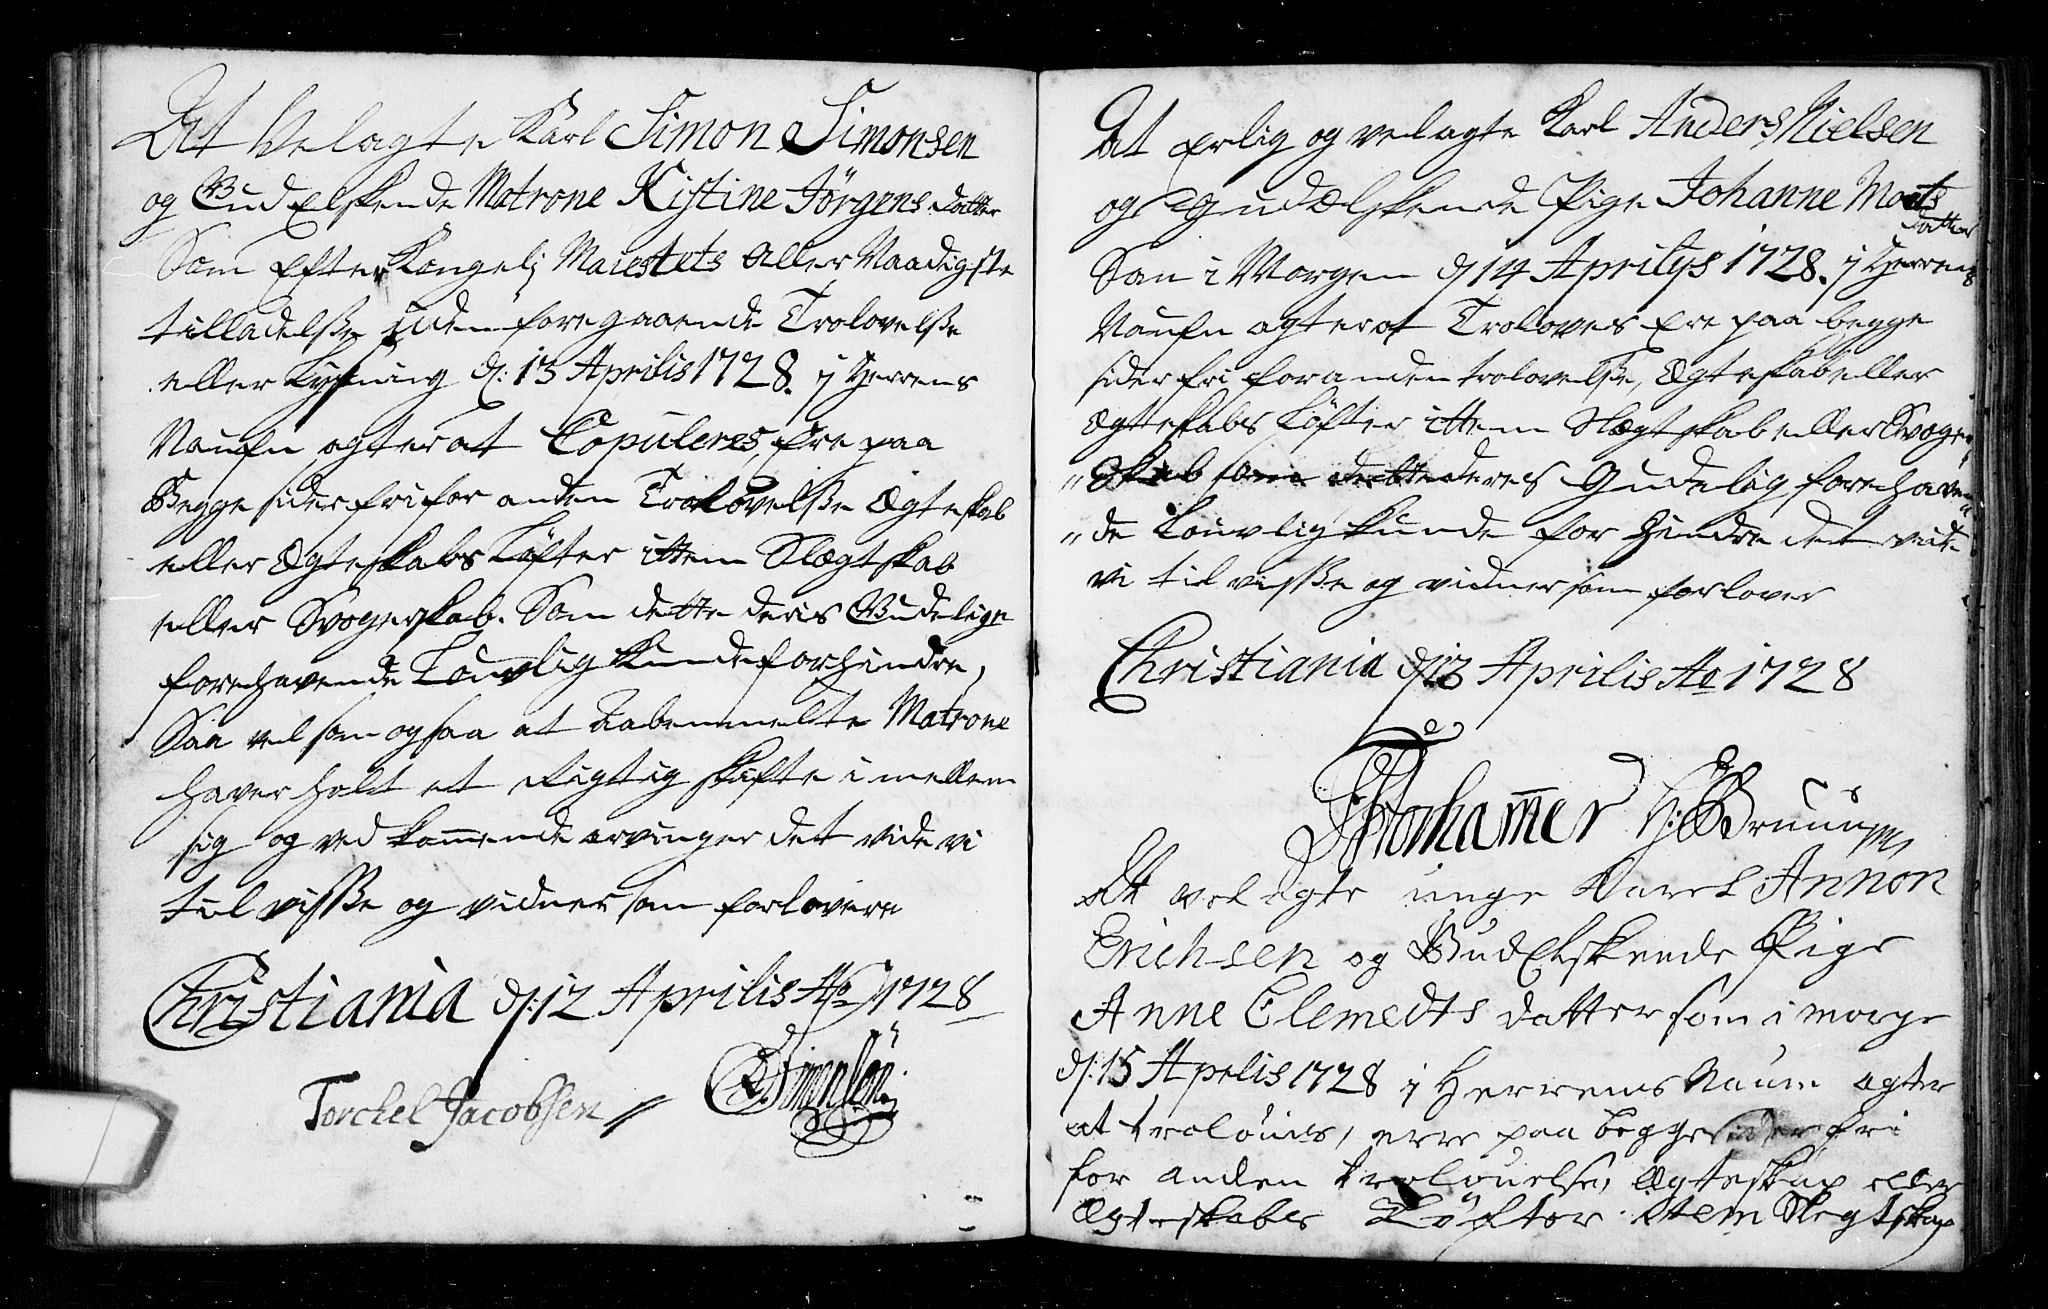 At Velagte Karl Simon Simonsen
og Gud Elskende Matrone Kistine Jörgens datter
Som Efter Kongelj Maiestets Aller Naadigste
tilladelsse uden foregaaende Trolovelsse
eller Lysning d: 13 Aprilis 1728. j Herrens
Naufn agter at Copuleres, Ere paa
Begge sider fri for anden Trolovelsse Ægteskab
eller Ægteskabs Löfter ittem Slægtskab
eller Svogerskab. Som dette deris Gudelige
forehavende Louvlig kunde forhindre,
Saa vel som ogsaa at Matrone
haver holt et Rigtig skifte i mellem
sig og ved kom̅ende arvinger det vide vi
til visse og vidner som forlovere
Christiania d: 12 Aprilis Ao 1728
Torchel Jacobsen Simensön
At Erlig og velagte Karl Anders Nielsen
og Gudælskende Pige Johanne Mats
datter
Som i Morgen d 14 Aprilys 1728. j Herrens
Naufn agter at Troloves Ere paa begge
sider fri for anden trolovelsse, Ægteskab eller
Ægteskabs Löfter ittem Slægtskab eller Svoger
skab som dette deres Gudelig forehaven
de Louvlig kunde forhindre det vide
vi til visse og vidner som forlover
Christiania d 13 Aprilis Ao 1728
Torham̅er H: Bruun
At velagte unge Karl Annon
Erichsen og Gud Elskende Pige
Anne Clemedts datter som i morge
d: 15 Apelis 1728 j Herrens Naun agter
at troloues, erre paa begge sider fri
for anden trolouelse, Ægteskap eller
Ægteskabes Löfter Item Slegtskap